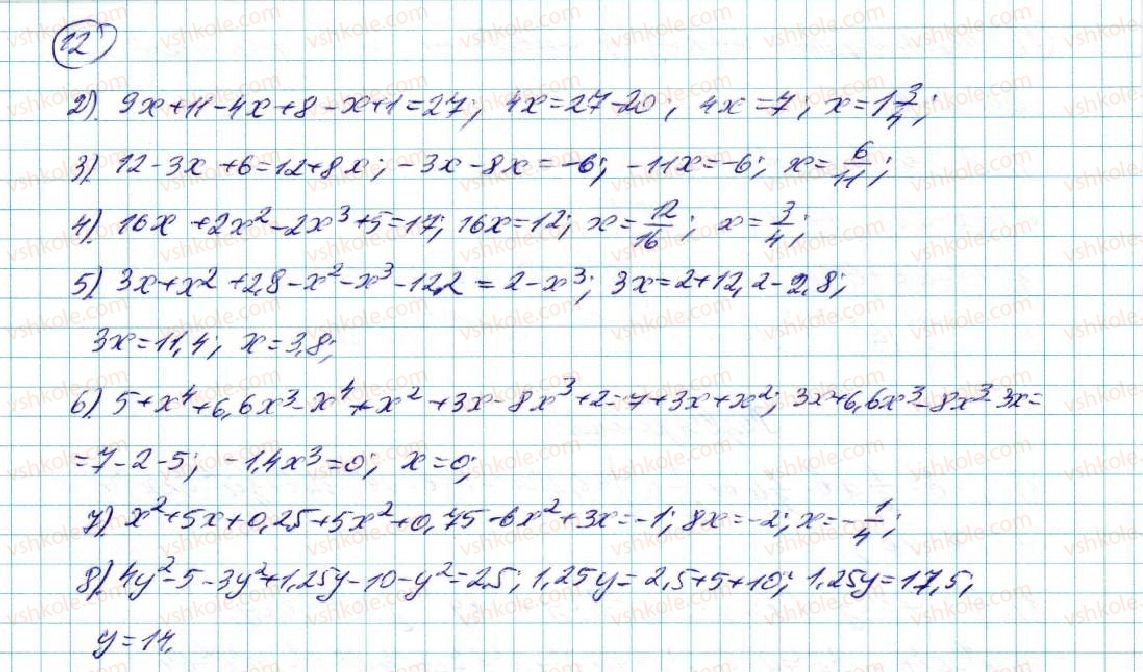 12
2) 9x+11-4x+8-x+1=27; 4x=27-20; 4x=7; x=1 3/4;
3) 12-3x+6=12+8x; -3x-8x=-6; -11x=-6; x=6/11;
4) 16x+2x²-2x³+5=17; 16x=12; x=12/16; x=3/4;
5) 3x+x²+2,8-x²-x³-12,2=2-x³; 3x=2+12,2-2,8;
3x=11,4; x=3,8;
6) 5+x⁴+6,6x³-x⁴+x²+3x-8x³+2=7+3x+x²; 3x+6,6x³-8x³-3x=
=7-2-5; -1,4x³=0; x=0;
7) x²+5x+0,25+5x²+0,75-6x²+3x=-1; 8x=-2; x=-1/4;
8) 4y²-5-3y²+1,25y-10-y²=2,5; 1,25y=2,5+5+10; 1,25y=17,5;
y=14.
vshkole.com